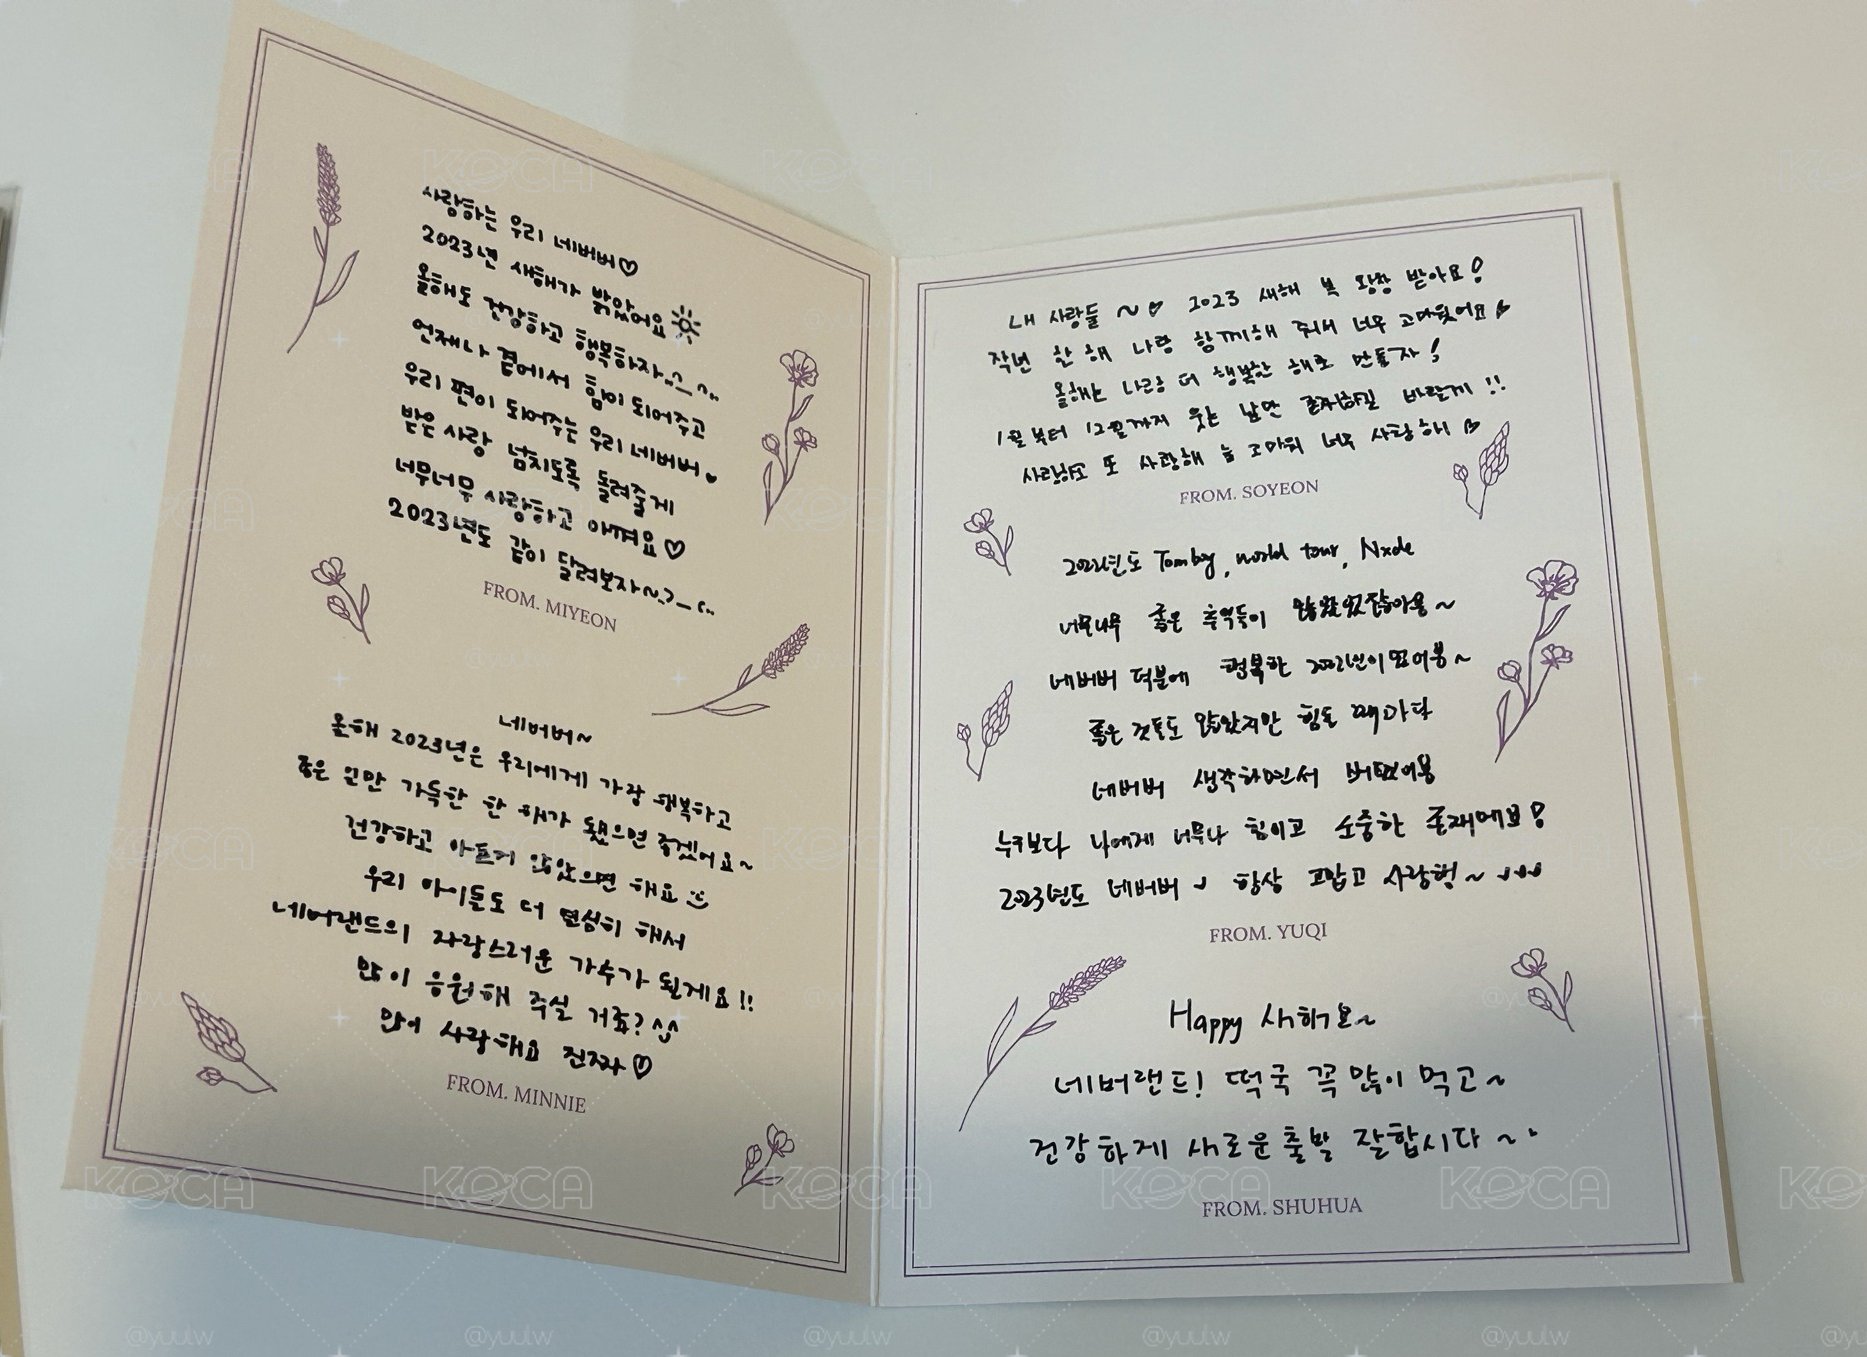 사랑하는 우리 네버버♡
2023년 새해가 밝았어요
올해도 건강하고 행복하자..^_^..
언제나 곁에서 힘이 되어주고
우리 편이 되어주는 우리 네버버♥
받은 사랑 넘치도록 돌려줄게
너무너무 사랑하고 아껴요♡
2023년도 같이 달려보자~.>_<..
FROM. MIYEON
네버버~
올해 2023년은 우리에게 가장 행복하고
좋은 일만 가득한 한 해가 됐으면 좋겠어요~
건강하고 아프거 않았으면 해요
우리 아이들도 더 열심히 해서
네버랜드의 자랑스러운 가수가 될게요!!
많이 응원해 주실 거죠?^^
많이 사랑해요 진짜♡
FROM. MINNIE
내 사랑들 ~♡ 2023 새해 복 왕창 받아요!
작년 한 해 나랑 함께해 줘서 너무 고마웠어요♥
올해도 나랑 더 행복한 해로 만들자!
1월부터 12월까지 웃는 날만 존재하길 바랄게!!
사랑하고 또 사랑해 늘 고마워 너무 사랑해♡
FROM. SOYEON
2022년도 Tomboy, world tour, Nxde
너무너무 좋은 추억들이 많았었잖아용~
네버버 덕분에 행복한 2022년이였어용~
좋은 것들도 많았지만 힘들 때마다
네버버 생각하면서 버텼어용
누구보다 나에게 너무나 힘이고 소중한 존재에요!
2023년도 네버버 항상 고맙고 사랑행~
FROM. YUQI
Happy 새해요~
네버랜드! 떡국 꼭 많이 먹고~
건강하게 새로운출발 잘합시다~
FROM. SHUHUA
KOCA
@yuulw